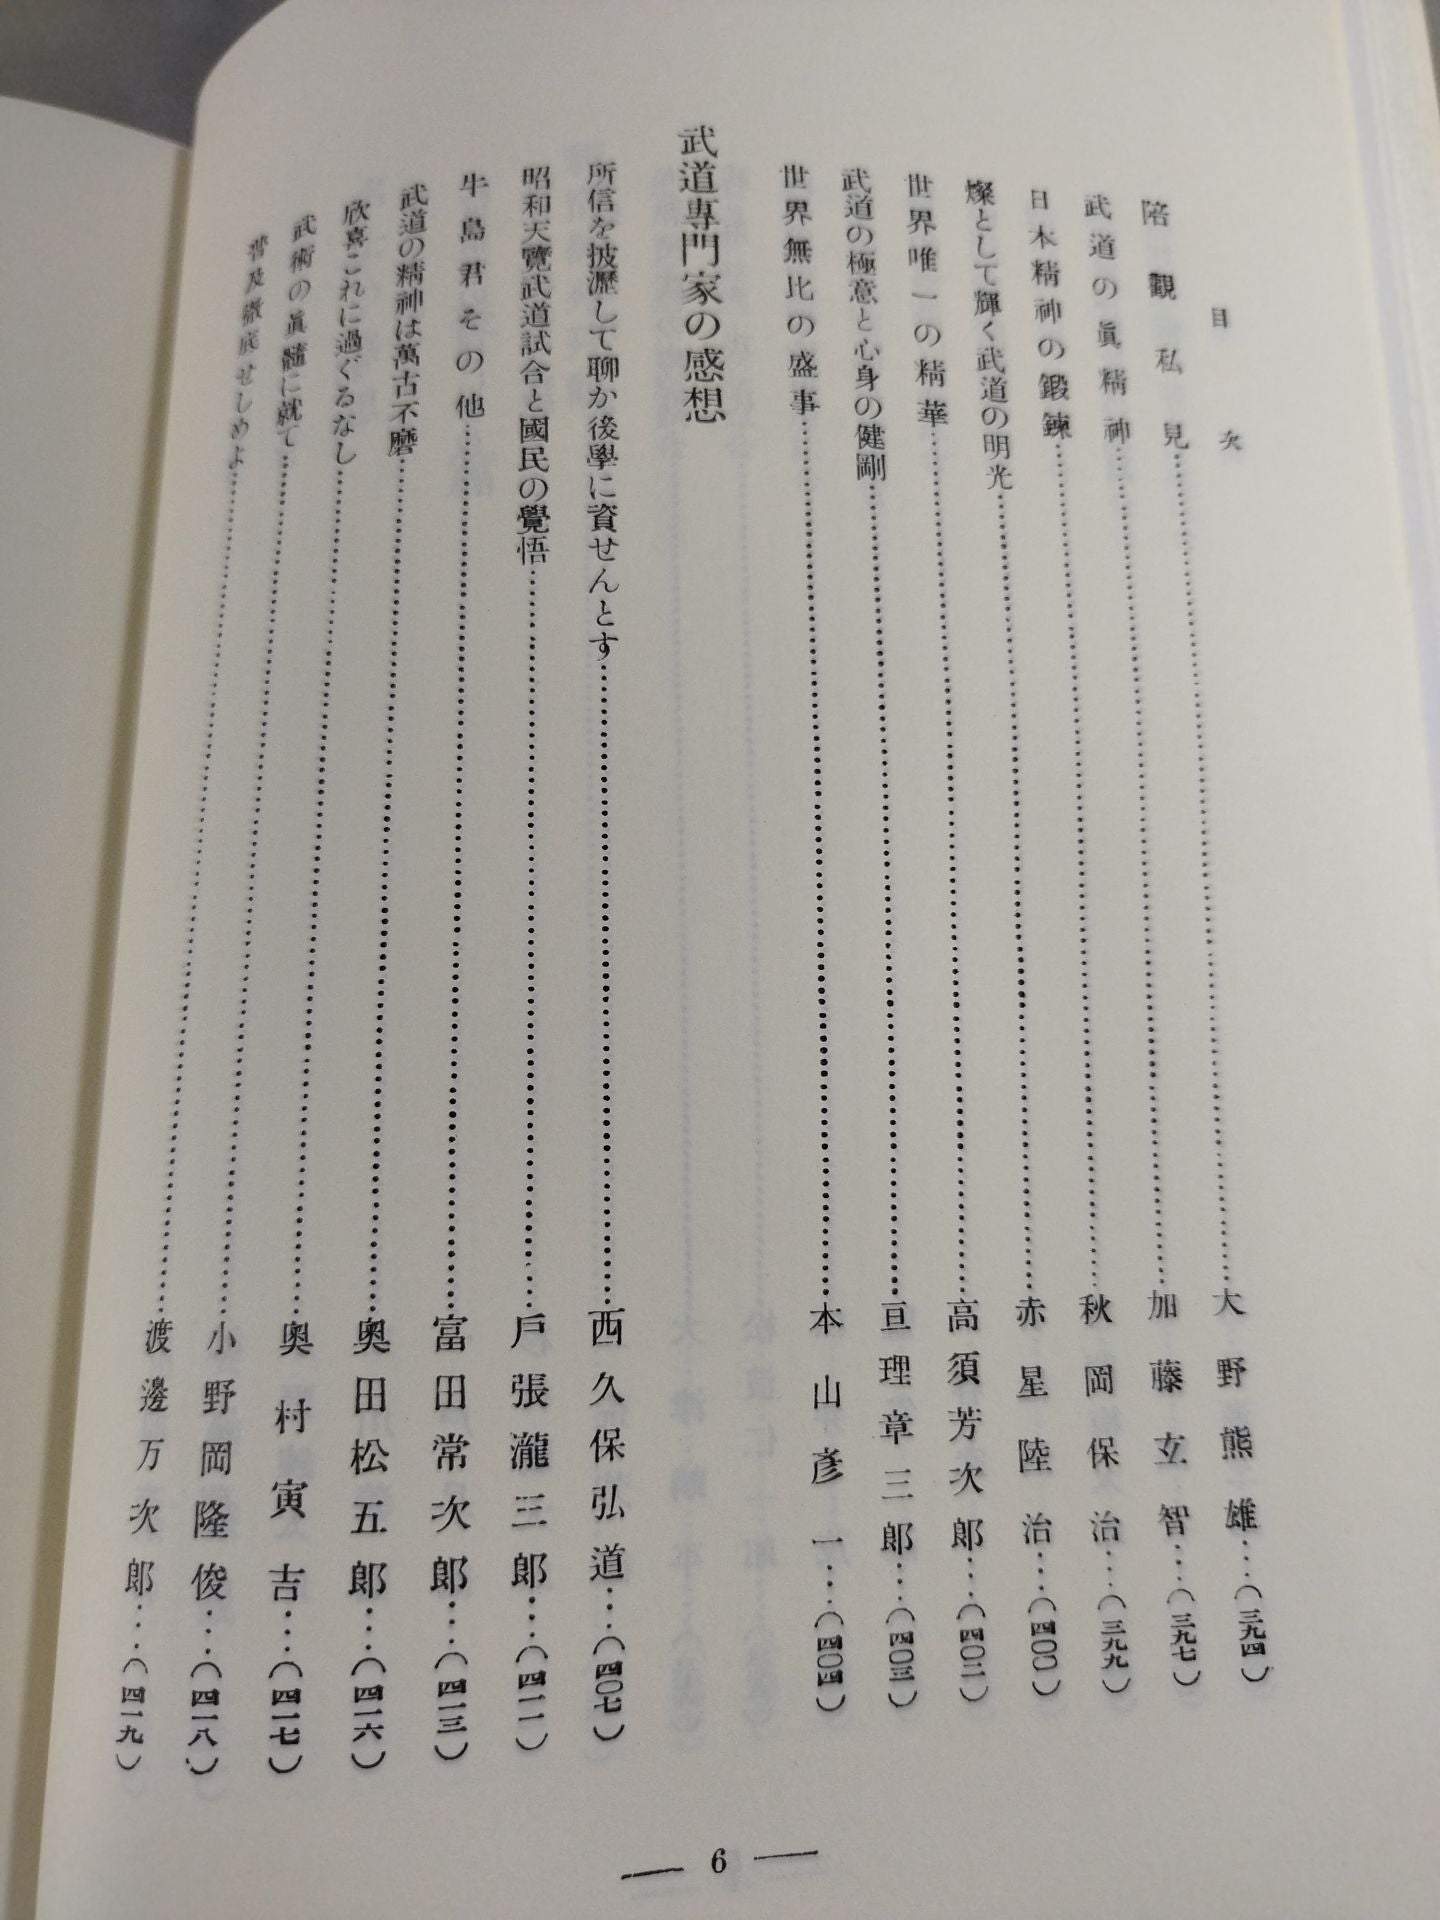 目次
陪觀私見……大野熊雄…(三九四)
武道の眞精神……加藤玄智…(三九七)
日本精神の鍛錬……秋岡保治…(三九九)
燦として輝く武道の明光……赤星陸治…(四〇〇)
世界唯一の精華……高須芳次郎…(四〇二)
武道の極意と心身の健剛……亘理章三郎…(四〇三)
世界無比の盛事……本山彥一…(四〇四)
武道專門家の感想
所信を披瀝して聊か後學に資せんとす……西久保弘道…(四〇七)
昭和天覽武道試合と國民の覺悟……戶張瀧三郎…(四一一)
牛島君その他……富田常次郎…(四一三)
武道の精神は萬古不磨……奧田松五郎…(四一六)
欣喜これに過ぐるなし……奧村寅吉…(四一七)
武術の眞髓に就て……小野岡隆俊…(四一八)
普及徹底せしめよ……渡邊万次郎…(四一九)
— 6 —